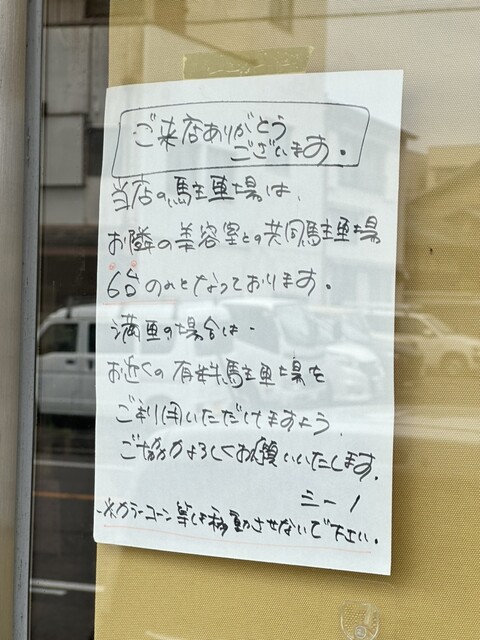 ご来店ありがとう
ございます。
当店の駐車場は、
お隣の美容室との共同駐車場
6台のみとなっております。
満車の場合は、
お近くの有料駐車場を
ご利用いただけますよう、
ご協力よろしくお願いいたします。
ミーノ
※カラーコーン等は移動させないで下さい。